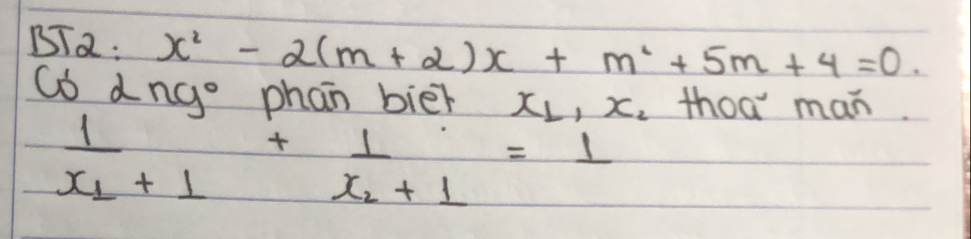 BT2: x² - 2(m + 2)x + m² + 5m + 4 = 0.
Có 2 ngº phân biệt x₁, x₂ thoả mãn.
1 + 1 = 1
x₁ + 1 x₂ + 1